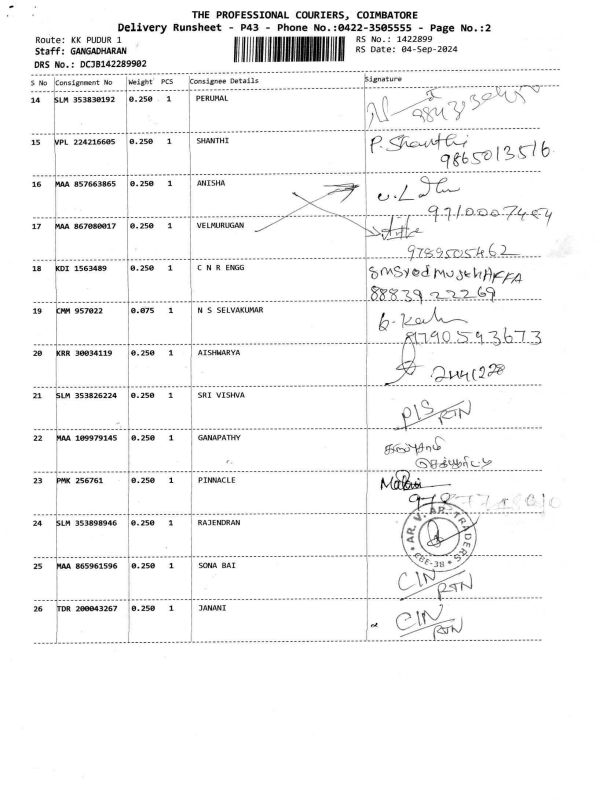 THE PROFESSIONAL COURIERS, COIMBATORE
Delivery Runsheet - P43 - Phone No.:0422-3505555 - Page No.:2
Route: KK PUDUR 1 RS No.: 1422899
Staff: GANGADHARAN RS Date: 04-Sep-2024
DRS No.: DCJB142289902
S No Consignment No Weight PCS Consignee Details Signature
14 SLM 353830192 0.250 1 PERUMAL
15 VPL 224216605 0.250 1 SHANTHI P. Shanthi
9865013516
16 MAA 857663865 0.250 1 ANISHA
17 MAA 867080017 0.250 1 VELMURUGAN
9789505462
18 KDI 1563489 0.250 1 C N R ENGG
88839 22269
19 CMM 957022 0.075 1 N S SELVAKUMAR
8790593673
20 KRR 30034119 0.250 1 AISHWARYA
21 SLM 353826224 0.250 1 SRI VISHVA P/S
RTN
22 MAA 109979145 0.250 1 GANAPATHY
23 PMK 256761 0.250 1 PINNACLE
24 SLM 353898946 0.250 1 RAJENDRAN AR. V. AR. TRADERS
CBE-38
25 MAA 865961596 0.250 1 SONA BAI C/N
RTN
26 TDR 200043267 0.250 1 JANANI C/N
RTN